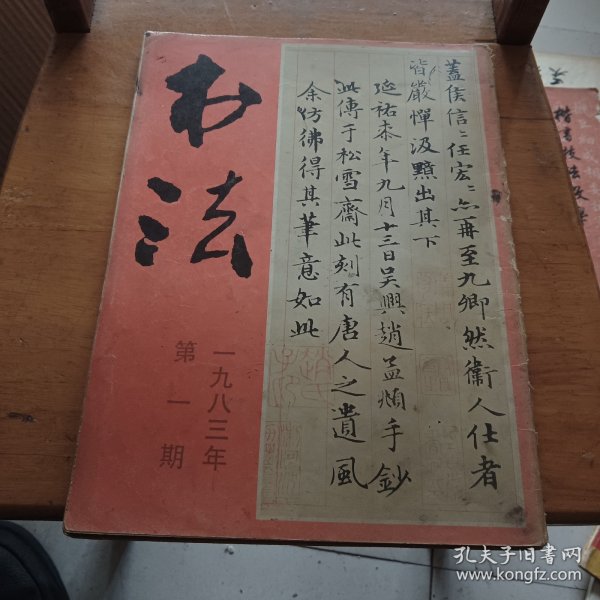 书法
一九八三年
第一期
蓋侯信=任宏=亦再至九卿然衞人仕者
皆嚴憚汲黯出其下
延祐柰年九月十三日吳興趙孟頫手鈔
此傳于松雪齋此刻有唐人之遺風
余仿彿得其筆意如此
楷書技法及
孔夫子旧书网
www.kongfz.com